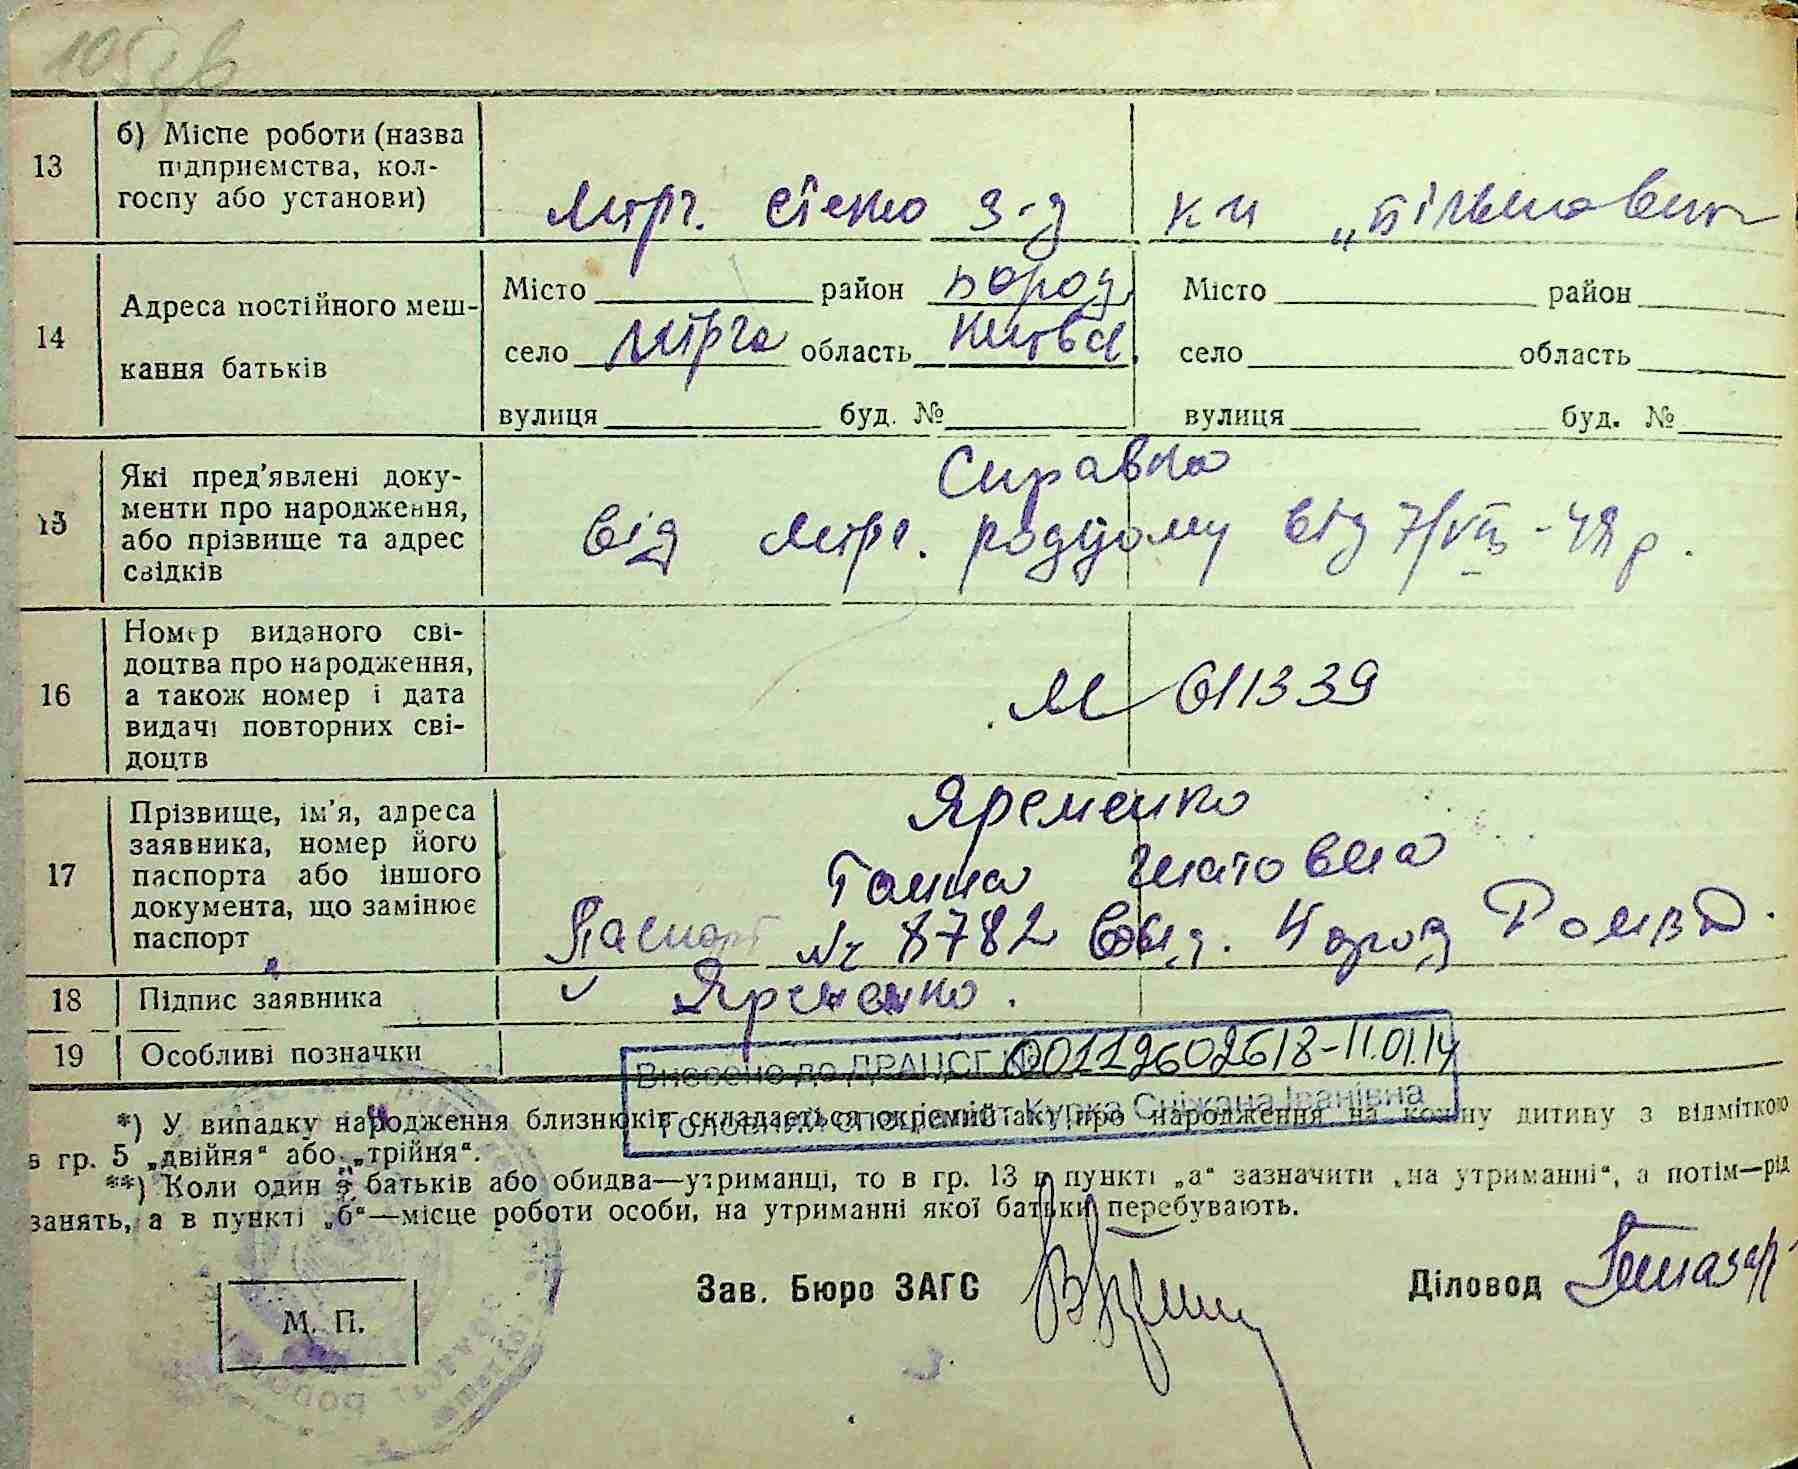 13
б) Місце роботи (назва
підприємства, кол-
госпу або установи)
Мирг. скло з-д
к-п „Більшовик
14
Адреса постійного меш-
кання батьків
Місто район Бород.
село Мирча область Київська
вулиця буд. №
Місто район
село область
вулиця буд. №
15
Які пред'явлені доку-
менти про народження,
або прізвище та адрес
свідків
Справка
від роддому від 7/VIII-49 р.
16
Номер виданого сві-
доцтва про народження,
а також номер і дата
видачі повторних сві-
доцтв
М 611339
17
Прізвище, ім'я, адреса
заявника, номер його
паспорта або іншого
документа, що замінює
паспорт
Яременко
Ганна
Паспорт № 8782 вид. Бород РОМВД.
18 Підпис заявника
Яременко.
19 Особливі позначки
Внесено до ДРАЦСГ № 00112602618-11.01.14
Головний спеціаліст Курка Сніжана Іванівна
*) У випадку народження близнюків складається окремий акт про народження на кожну дитину з відміткою
в гр. 5 „двійня“ або „трійня“.
**) Коли один з батьків або обидва—утриманці, то в гр. 13 в пункті „а“ зазначити „на утриманні“, а потім—рід
занять, а в пункті „б“—місце роботи особи, на утриманні якої батьки перебувають.
Зав. Бюро ЗАГС
Діловод
М. П.